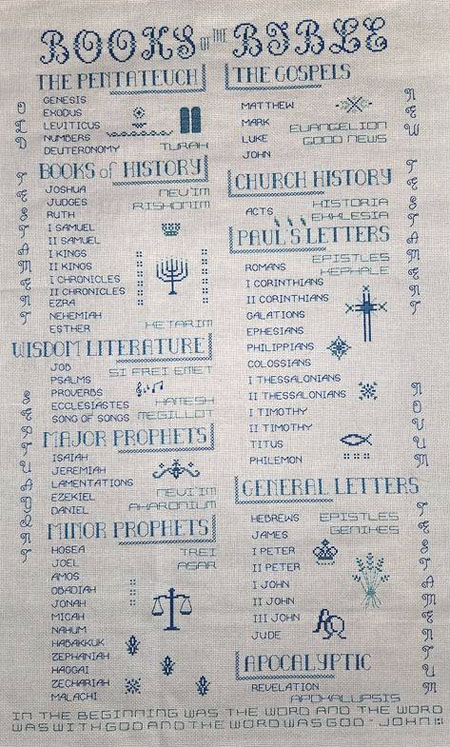 BOOKS OF THE BIBLE
THE PENTATEUCH
GENESIS
EXODUS
LEVITICUS
NUMBERS
DEUTERONOMY
TORAH
BOOKS of HISTORY
JOSHUA
NEV'IM
JUDGES
RISHONIM
RUTH
I SAMUEL
II SAMUEL
I KINGS
II KINGS
I CHRONICLES
II CHRONICLES
EZRA
NEHEMIAH
ESTHER
KETARIM
WISDOM LITERATURE
JOB
SI FREI EMET
PSALMS
PROVERBS
ECCLESIASTES
HAMESH
SONG OF SONGS
MEGILLOT
MAJOR PROPHETS
ISAIAH
JEREMIAH
LAMENTATIONS
EZEKIEL
NEVI'IM
DANIEL
AHARONIUM
MINOR PROPHETS
HOSEA
TREI
JOEL
ASAR
AMOS
OBADIAH
JONAH
MICAH
NAHUM
HABAKKUK
ZEPHANIAH
HAGGAI
ZECHARIAH
MALACHI
OLD
TESTAMENT
THE GOSPELS
MATTHEW
MARK
EVANGELION
LUKE
GOOD NEWS
JOHN
CHURCH HISTORY
HISTORIA
ACTS
EKKLESIA
PAUL'S LETTERS
EPISTLES
ROMANS
KEPHALE
I CORINTHIANS
II CORINTHIANS
GALATIONS
EPHESIANS
PHILIPPIANS
COLOSSIANS
I THESSALONIANS
II THESSALONIANS
I TIMOTHY
II TIMOTHY
TITUS
PHILEMON
GENERAL LETTERS
HEBREWS
EPISTLES
JAMES
GENIKES
I PETER
II PETER
I JOHN
II JOHN
III JOHN
JUDE
APOCALYPTIC
REVELATION
APOKALUPSIS
NEW
TESTAMENT
NOVUM
TESTAMENTUM
IN THE BEGINNING WAS THE WORD AND THE WORD
WAS WITH GOD AND THE WORD WAS GOD - JOHN 1:1